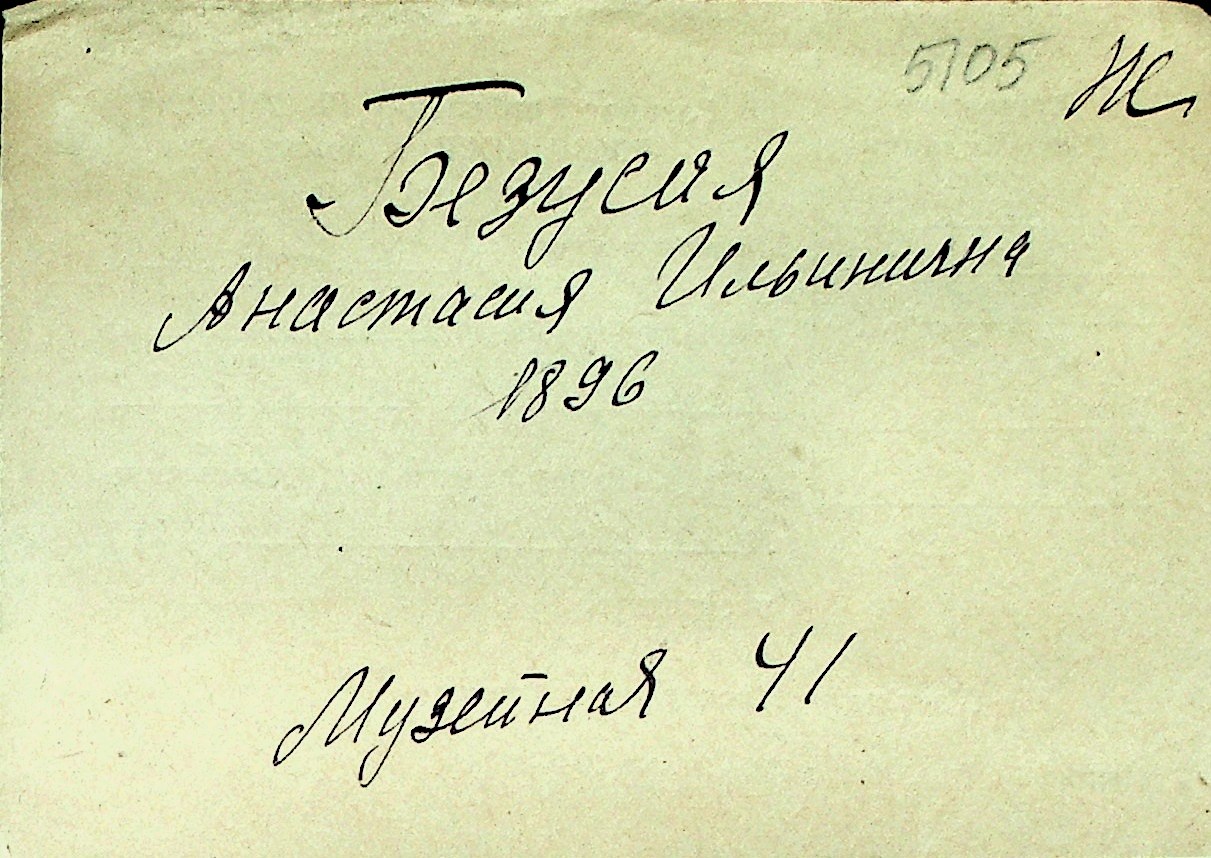 5105 Ж
Безусая
Анастасия Ильинична
1896
Музейная 41